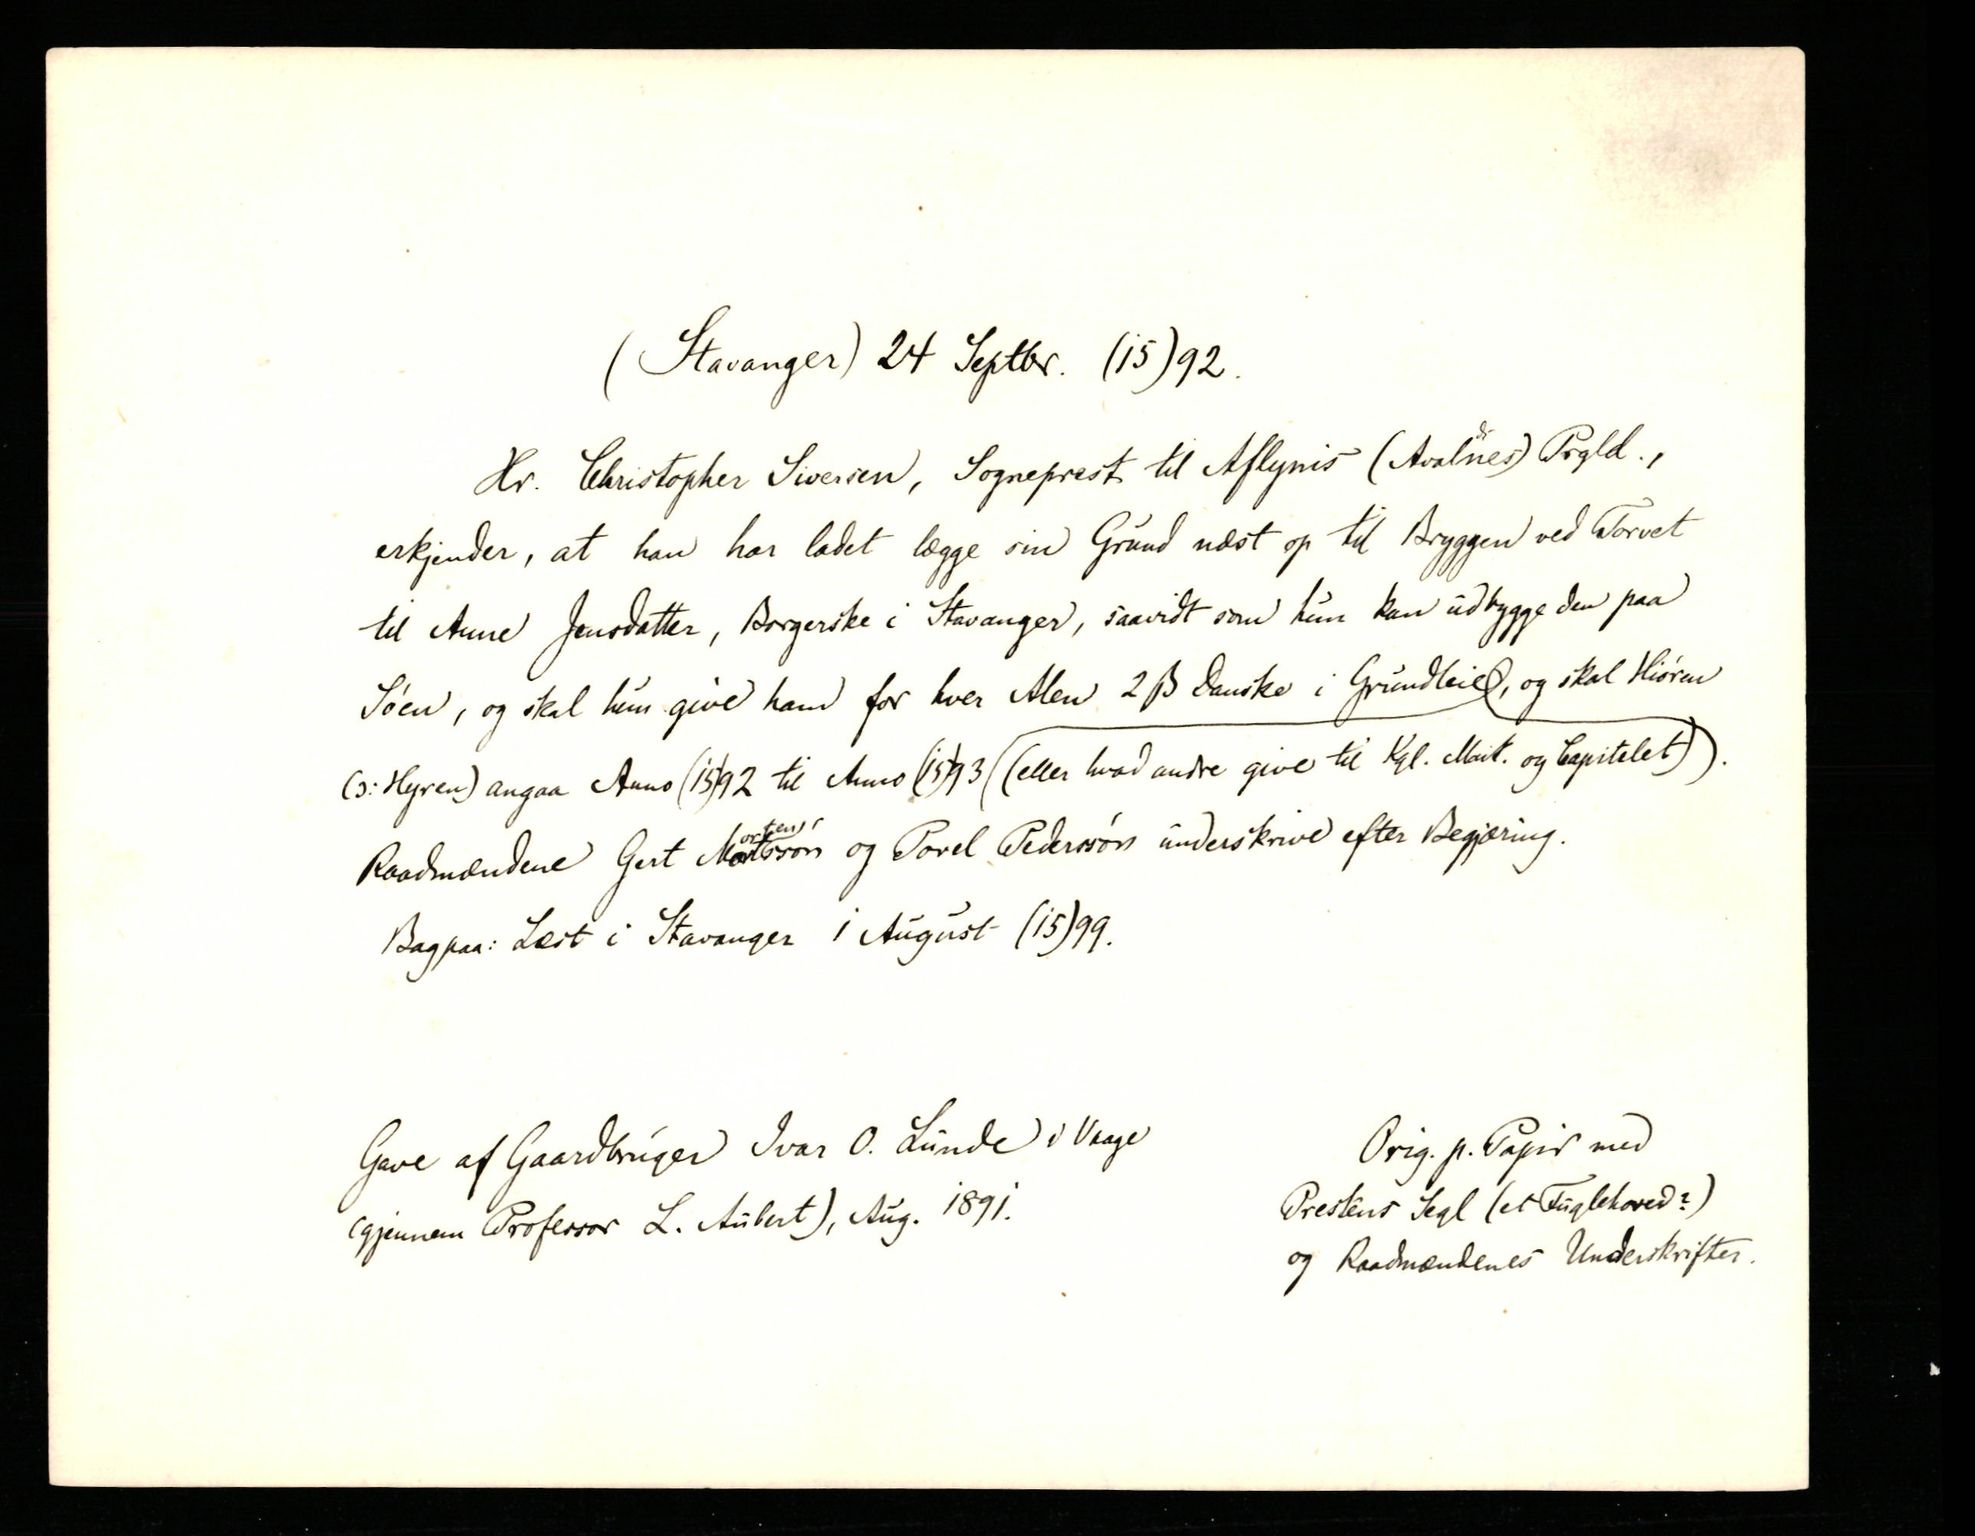 (Stavanger) 24 Septbr. (15)92.
Hr. Christopher Siversen, Sogneprest til Aflynis (Avalnes) Prgld.,
erkjender, at han har ladet lægge sin Grund næst op til Bryggen ved Torvet
til Anne Jensdatter, Borgerske i Stavanger, saavidt som hun kan udbygge den paa
Söen, og skal hun give ham for hver Alen 2 ß Danske i Grundleie, og skal Hiören
(ɔ: Hyren) angaa Anno (15)92 til Anno (15)93 ((eller hvad andre give til Kgl. Mait. og Capitelet)).
Raadmændene Gert Mortensön og Povel Pederssön underskrive efter Begjæring.
Bagpaa: Læst i Stavanger 1 August (15)99.
Gave af Gaardbruger Ivar O. Lunde i Vaage
(gjennem Professor L. Aubert), Aug. 1891.
Orig. p. Papir med
Prestens Segl (et Fuglehoved?)
og Raadmændenes Underskrifter.